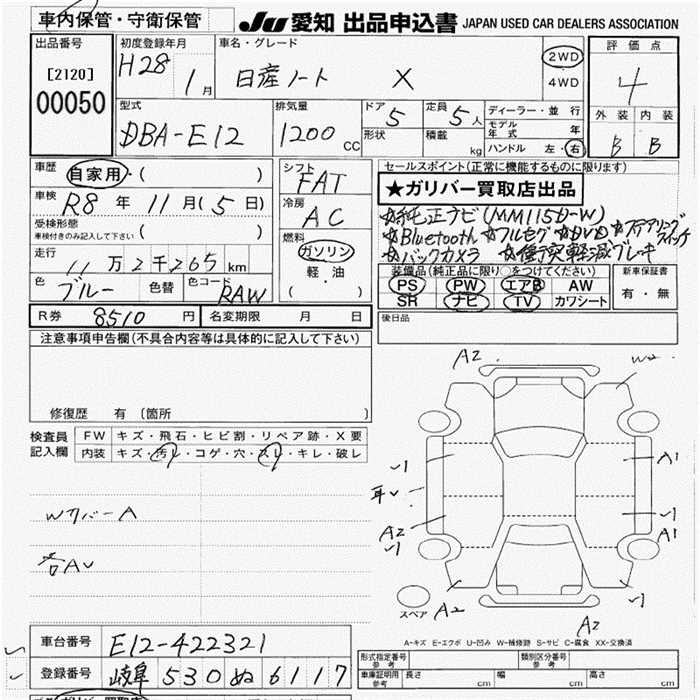 車内保管・守衛保管
JU 愛知 出品申込書 JAPAN USED CAR DEALERS ASSOCIATION
出品番号
[2120]
00050
初度登録年月
H28 1月
車名・グレード
日産ノート X
2WD
4WD
評価点
4
外装 内装
B B
型式
DBA-E12
排気量
1200 CC
ドア 5
形状
定員 5人
積載 kg
ディーラー・並行
モデル年式 年
ハンドル 左・右
車歴
自家用・( )
車検
R8年 11月(5日)
受検形態
車検付きのみ記入して下さい ( )
走行
11万2千265km
色 ブルー 色替 色コード RAW
シフト
FAT
冷房
AC
燃料
ガソリン
軽・油
( )
セールスポイント(正常に機能するものに限ります)
★ガリバー買取店出品
☆純正ナビ(MM115D-W)
☆Bluetooth ☆フルセグ ☆DVD ☆ステアリングスイッチ
☆バックカメラ ☆衝突軽減ブレーキ
装備品(純正品に限り○をつけてください)
PS PW エアB AW
SR ナビ TV カワシート
新車保証書
有・無
R券 8510円 名変期限 月 日
後日品
注意事項申告欄(不具合内容等は具体的に記入して下さい)
修復歴 有(箇所 )
検査員記入欄
FW キズ・飛石・ヒビ割・リペア跡・X要
内装 キズ・汚レ・コゲ・穴・スレ・キレ・破レ
A2
W2
A1
A2
A1
スペア
A2
A2
A-キズ E-エクボ U-凹み W-補修跡 S-サビ C-腐食 XX-交換済
車台番号 E12-422321
登録番号 岐阜 530 ぬ 6117
形式指定番号 参考
類別区分番号 参考
車庫証明用 参考 長さ cm 幅 cm 高さ cm